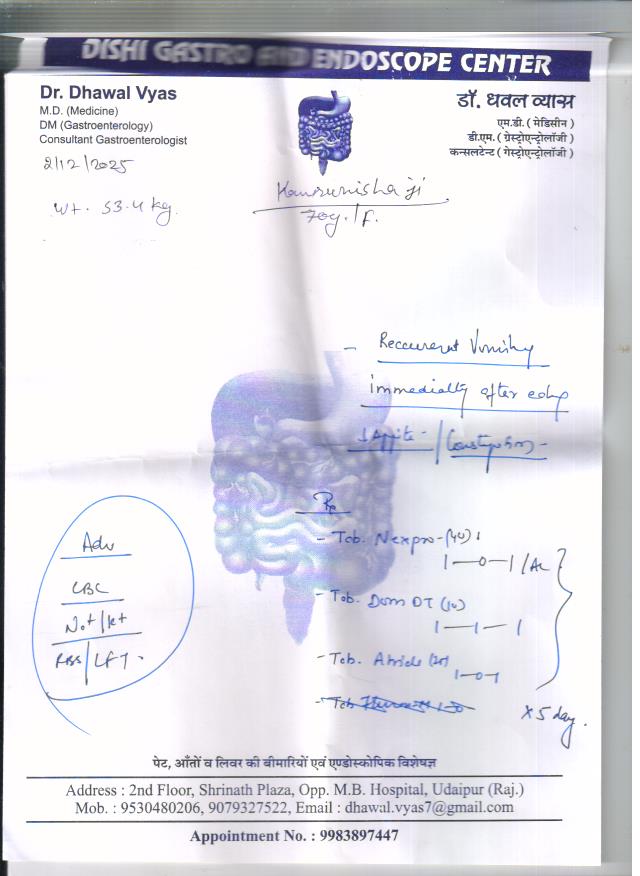 DISHI GASTRO AND ENDOSCOPE CENTER
Dr. Dhawal Vyas
M.D. (Medicine)
DM (Gastroenterology)
Consultant Gastroenterologist
डॉ. धवल व्यास
एम.डी. ( मेडिसीन )
डी.एम. ( ग्रेस्ट्रोएन्ट्रोलॉजी )
कन्सलटेन्ट ( गेस्ट्रोएन्ट्रोलॉजी )
2/12/2025
Wt. 53.4 kg.
70y./F.
- Reccurent Vomity
immedially after
↓ Appite - / Constipation -
Rx
- Tab. Nexpro - (40)
1 - 0 - 1 / AC
- Tab. Dom DT (10)
1 - 1 - 1
- Tab.
1 - 0 - 1
- Tab.
x 5 day.
Adv
CBC
Na+/K+
RBS / LFT -
पेट, आँतों व लिवर की बीमारियों एवं एण्डोस्कोपिक विशेषज्ञ
Address : 2nd Floor, Shrinath Plaza, Opp. M.B. Hospital, Udaipur (Raj.)
Mob. : 9530480206, 9079327522, Email : dhawal.vyas7@gmail.com
Appointment No. : 9983897447